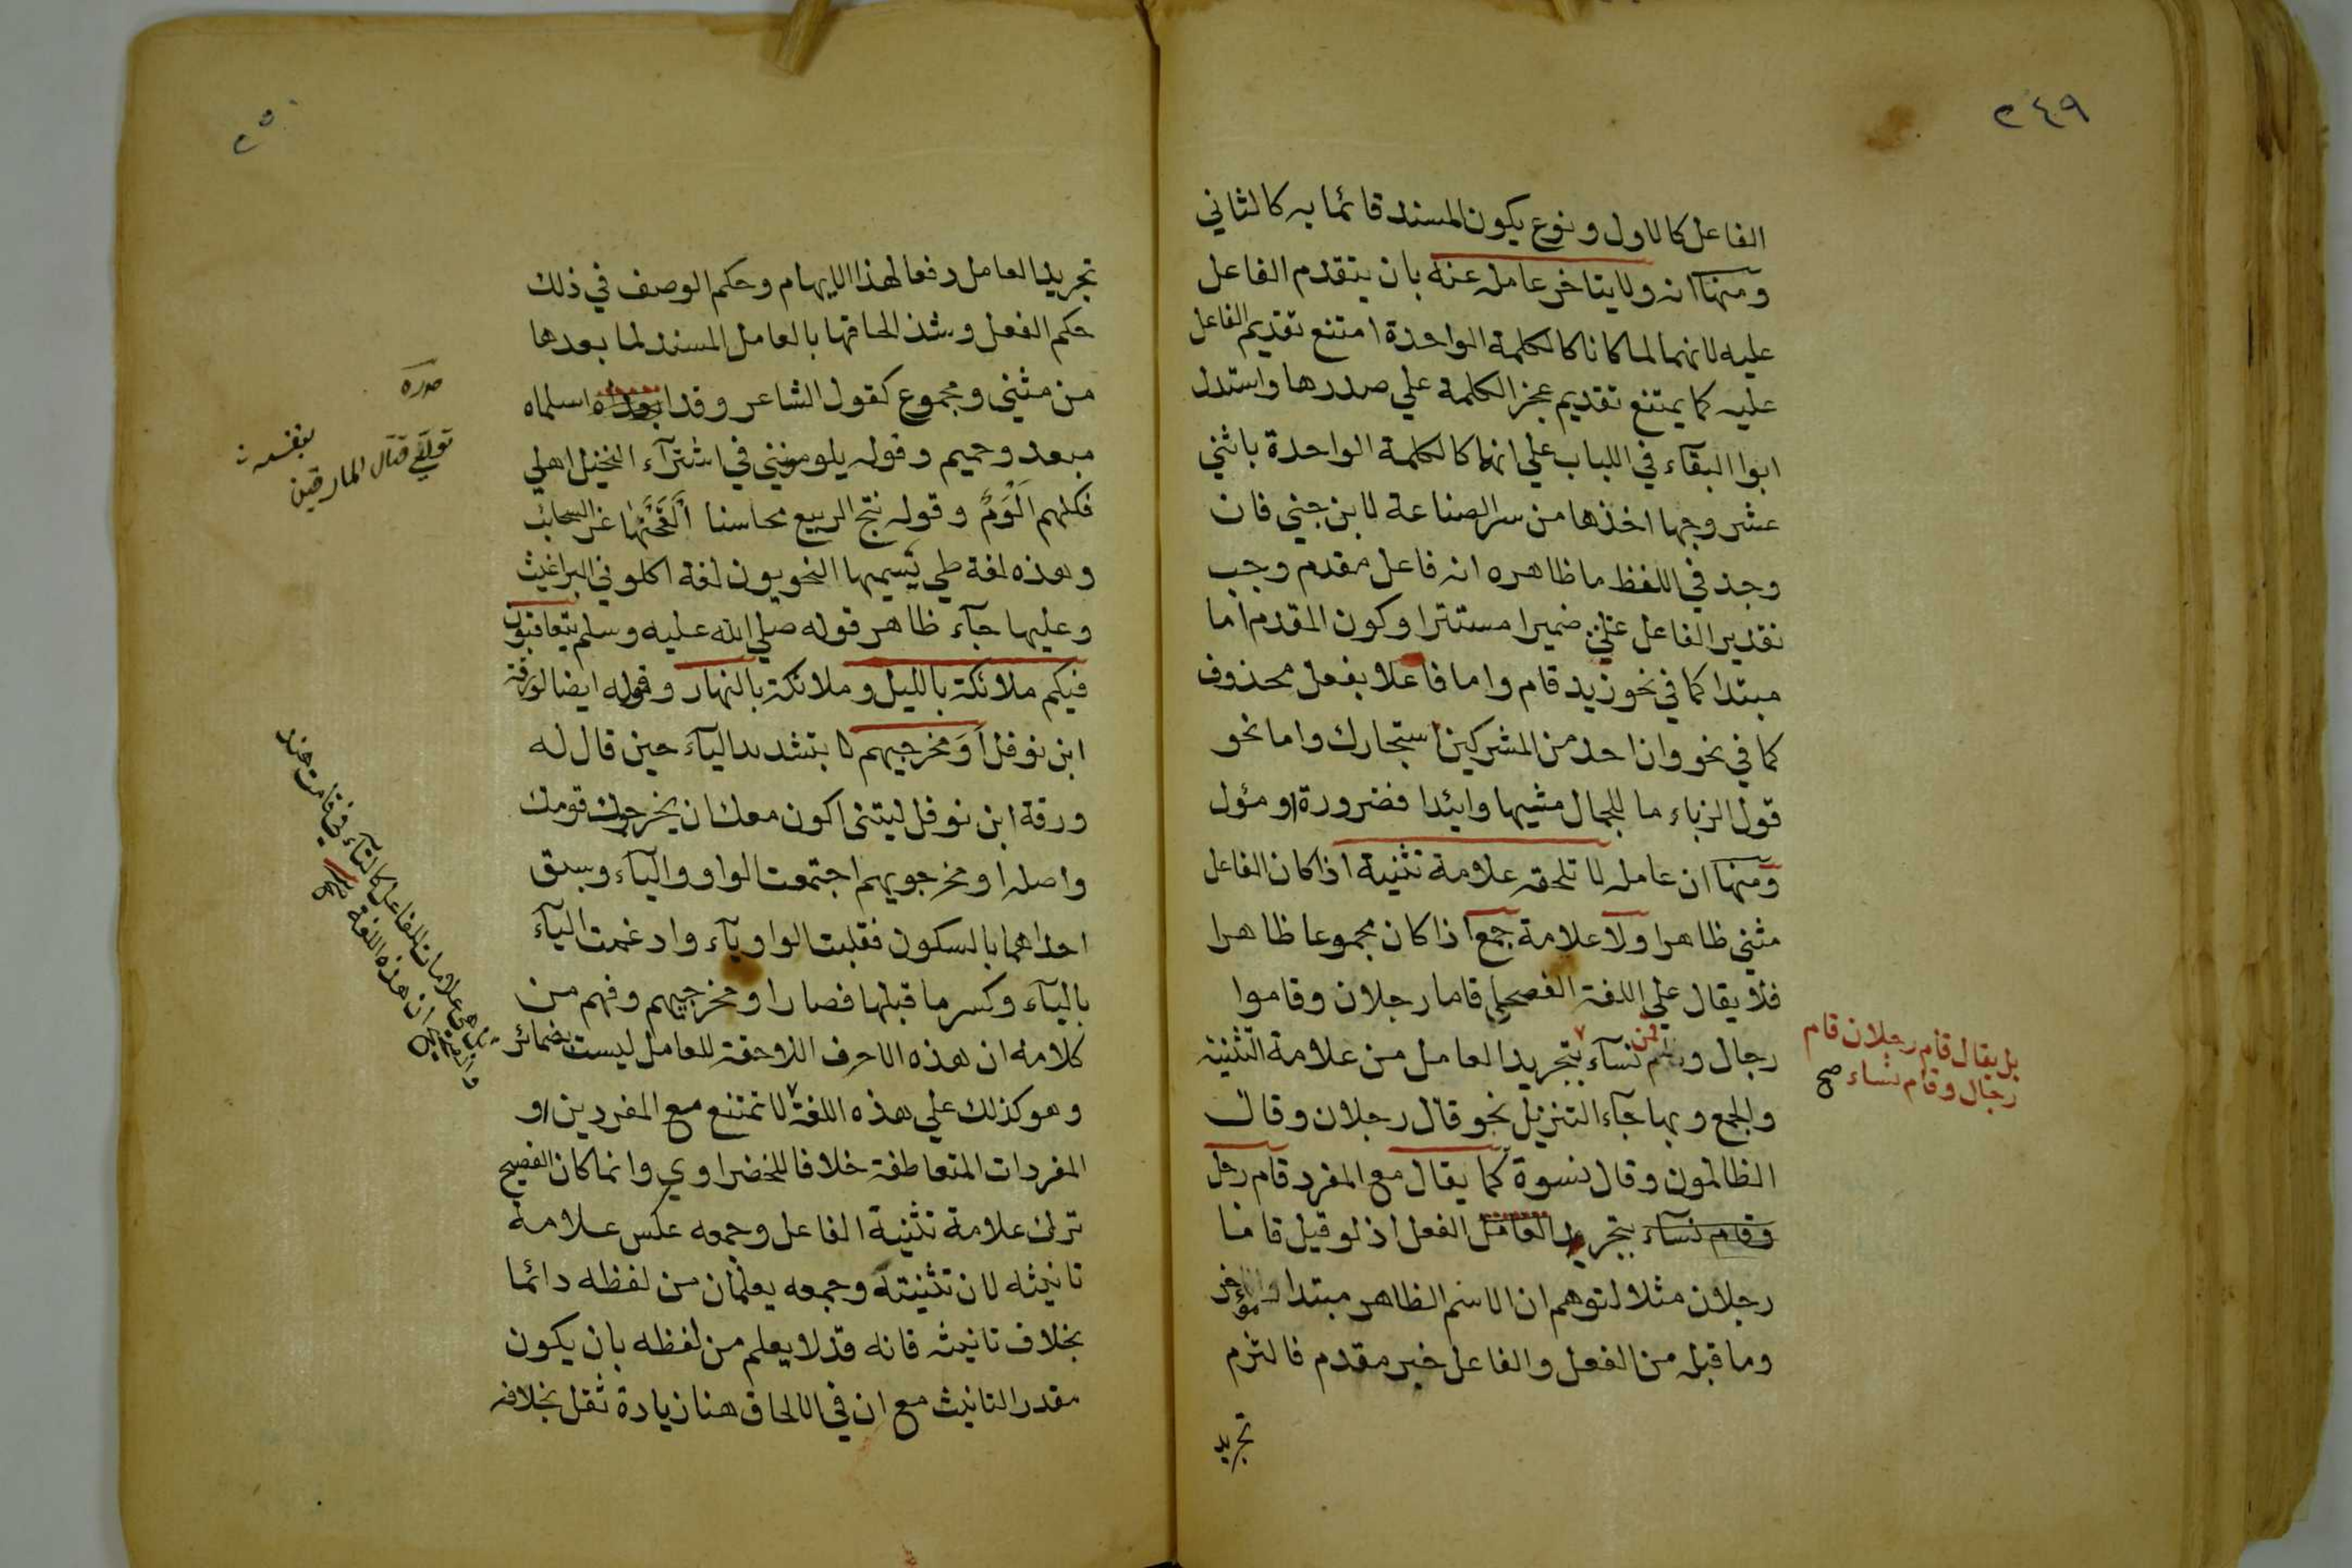 ٢٤٩
الفاعل كالاول ونوع يكون المسند قائما به كالثاني
ومنها انه ولا يتاخر عامله عنه بان يتقدم الفاعل
عليه لانهما لما كانا كالكلمة الواحدة امتنع تقديم الفاعل
عليه كما يمتنع تقديم عجز الكلمة علي صدرها واستدل
ابوا البقآء في اللباب علي انها كالكلمة الواحدة باثني
عشر وجها اخذها من سر الصناعة لابن جني فان
وجد في اللفظ ما ظاهره انه فاعل مقدم وجب
تقدير الفاعل ضميرا مستترا وكون المقدم اما
مبتدا كما في نحو زيد قام واما فاعلا بفعل محذوف
كما في نحو وان احد من المشركين استجارك واما نحو
قول الزباء ما للجمال مشيها وائدا فضرورة او مؤل
ومنها ان عامله لا تلحقه علامة تثنية اذا كان الفاعل
مثني ظاهرا ولا علامة جمع اذا كان مجموعا ظاهرا
فلا يقال علي اللغة الفصحي قاما رجلان وقاموا
رجال وقمن نسآء بتجريد العامل من علامة التثنية
بل يقال قام رجلان قام
رجال وقام نساء صح
والجمع وبها جآء التنزيل نحو قال رجلان وقال
الظالمون وقال نسوة كما يقال مع المفرد قام رجل
وقام نسآء بتجريد العامل الفعل اذ لو قيل قاما
رجلان مثلا لتوهم ان الاسم الظاهر مبتدا مؤخر
وما قبله من الفعل والفاعل خبر مقدم فالتزم
تجريد
٢٥٠
تجريد العامل دفعا لهذا الايهام وحكم الوصف في ذلك
حكم الفعل وشذ الحاقها بالعامل المسند لما بعدها
من مثني ومجموع كقول الشاعر وقد ابعداه اسلماه
صدره
تولي قتال المارقين
بنفسه
مبعد وحميم وقوله يلومونني في اشترآء النخيل اهلي
فكلهم اَلْوَمُ وقوله نتج الربيع محاسنا اَلْقَحْنَها غر السحائب
وهذه لغة طي تسميها النحويون لغة اكلوني البراغيث
وعليها جآء ظاهر قوله صلي الله عليه وسلم يتعاقبون
فيكم ملائكة بالليل وملائكة بالنهار وقوله ايضا لورقة
ابن نوفل اَوَمخرجيهم بتشديد اليآء حين قال له
ورقة ابن نوفل ليتني اكون معك ان يخرجوك قومك
واصله او مخرجويهم اجتمعت الواو واليآء وسبق
احداهما بالسكون فقلبت الواو يآء وادغمت اليآء
باليآء وكسر ما قبلها فصار او مخرجيهم وفهم من
كلامه ان هذه الاحرف اللاحقة للعامل ليست بضمائر
بل هي علامات للفاعل كالتآء في قامت هند
وهو كذلك علي هذه اللغة لا تمتنع مع المفردين او
المفردات المتعاطفة خلافا للخضراوي وانما كان الفصيح
ترك علامة تثنية الفاعل وجمعه عكس علامة
تانيثه لان تثنيته وجمعه يعلمان من لفظه دائما
بخلاف تانيثه فانه قد لا يعلم من لفظه بان يكون
مقدر التانيث مع ان في الالحاق هنا زيادة ثقل بخلافه